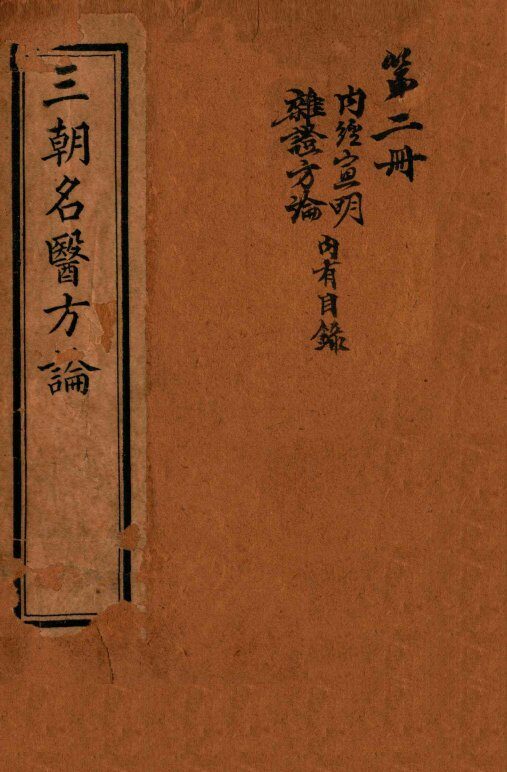 第二冊
內經宣明
雜證方論
內有目錄
三朝名醫方論